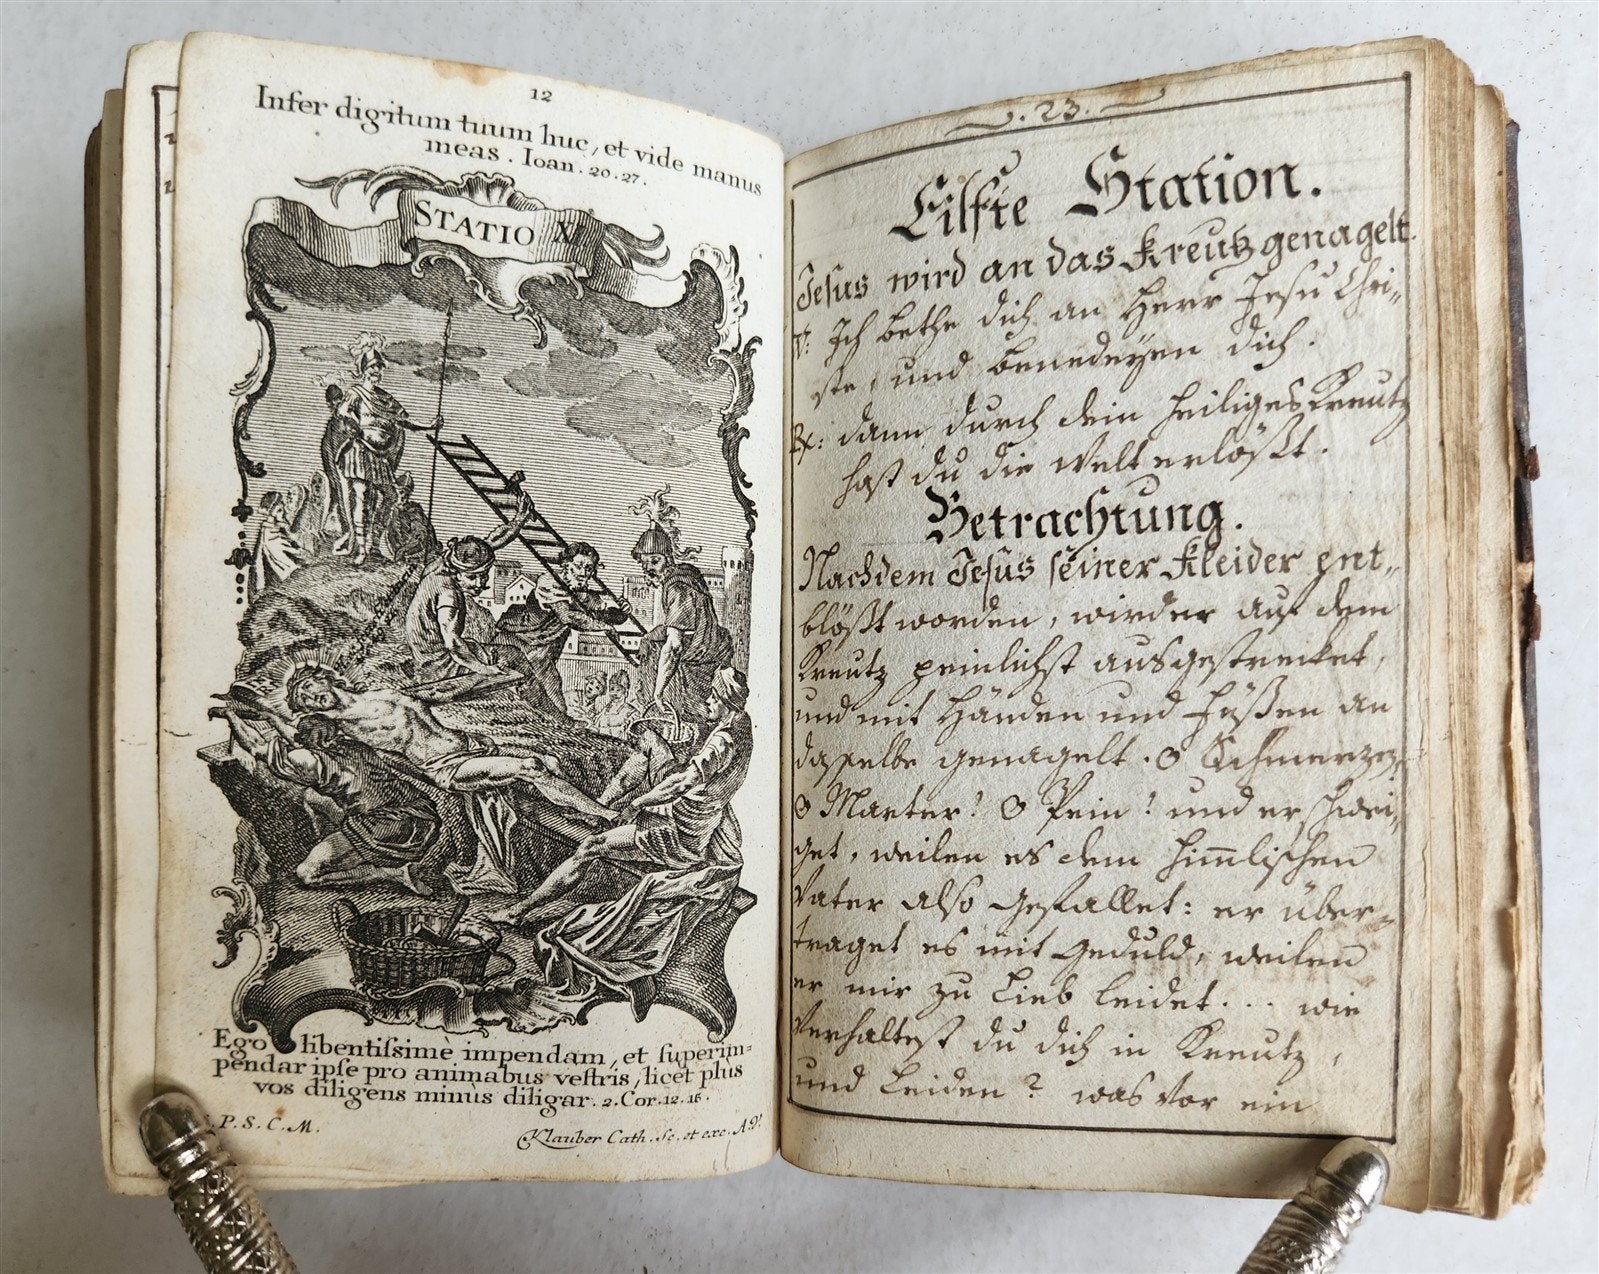 12
Infer digitum tuum huc, et vide manus
meas. Ioan. 20. 27.
STATIO X
Ego libentiſsimè impendam, et ſuperim=
pendar ipſe pro animabus veſtris, licet plus
vos diligens minùs diligar. 2. Cor. 12. 15.
P. S. C. M.
Klauber Cath. Sc. et exc. A.V.
. 23. 
Eilfte Station.
Jeſus wird an das Kreutz genagelt.
V: Ich bethe dich an Herr Jeſu Chri-
ste, und benedeyen dich.
Rx: dann durch dein heiliges Kreutz
hast du die Welt erlößt.
Betrachtung.
Nachdem Jeſus ſeiner Kleider ent-
blößt worden, wird er auf dem
Kreutz peinlichst ausgestrecket,
und mit Händen und Füßen an
dasselbe genagelt. O Schmerzen,
O Marter! O Pein! und er schwei-
get, weilen es dem himlischen
Vater also gefallet: er über-
traget es mit Geduld, weilen
er mir zu Lieb leidet... wie
verhaltest du dich in Kreutz,
und Leiden? was vor ein